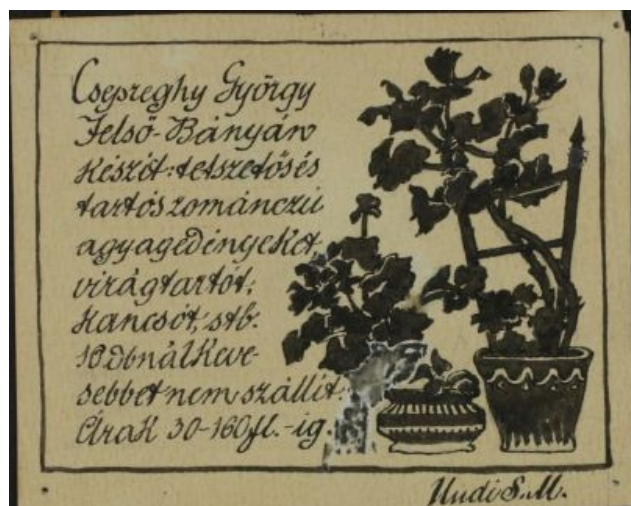 Csepreghy György
Felső-Bányán
készít: tetszetős és
tartós zománczú
agyagedényeket,
virágtartót,
kancsót, stb.
10 dbnál keve-
sebbet nem szállít.
Árak 30-160 fl.-ig.
Nudi S. M.